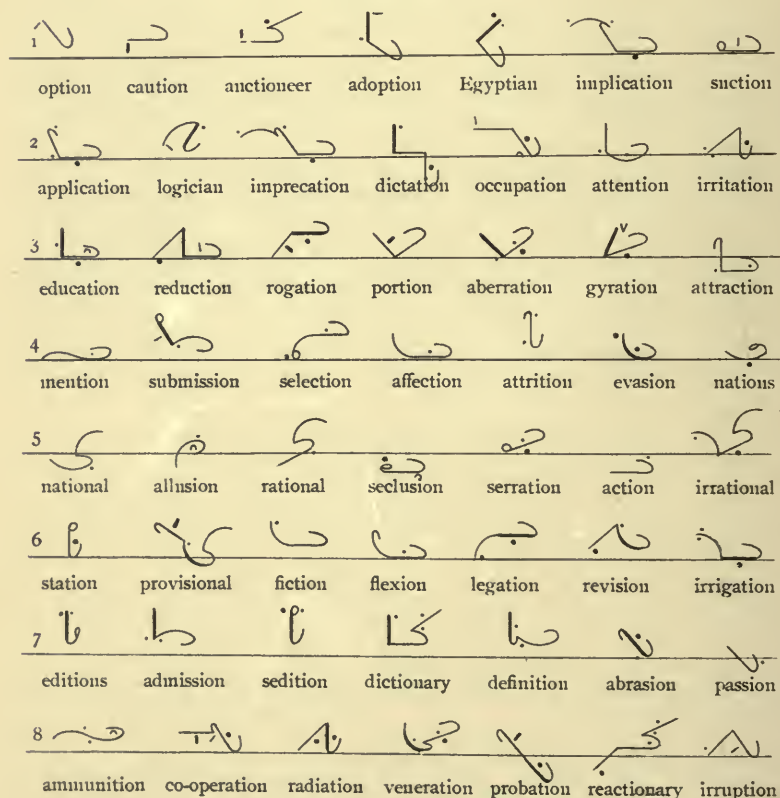 1
option caution auctioneer adoption Egyptian implication suction
2
application logician imprecation dictation occupation attention irritation
3
education reduction rogation portion aberration gyration attraction
4
mention submission selection affection attrition evasion nations
5
national allusion rational seclusion serration action irrational
6
station provisional fiction flexion legation revision irrigation
7
editions admission sedition dictionary definition abrasion passion
8
ammunition co-operation radiation veneration probation reactionary irruption